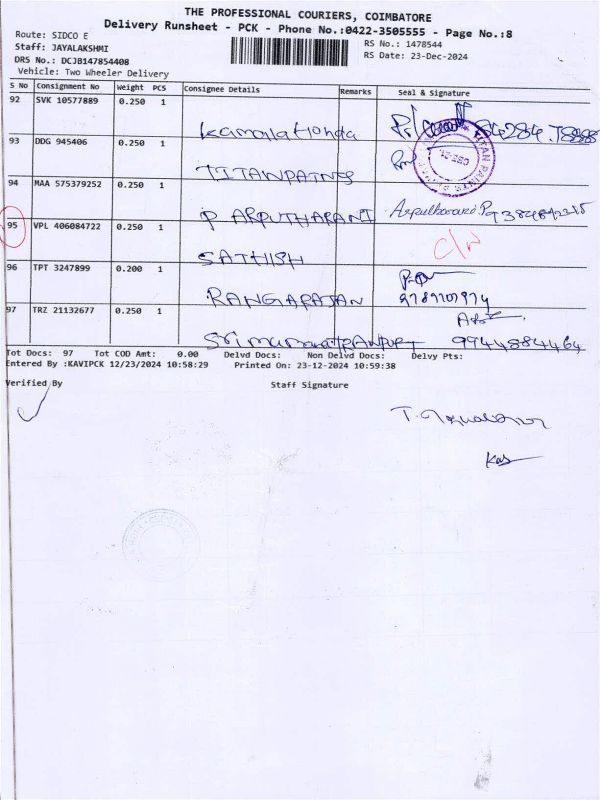 THE PROFESSIONAL COURIERS, COIMBATORE
Delivery Runsheet - PCK - Phone No.:0422-3505555 - Page No.:8
Route: SIDCO E
Staff: JAYALAKSHMI
RS No.: 1478544
DRS No.: DCJB147854408
RS Date: 23-Dec-2024
Vehicle: Two Wheeler Delivery
S No Consignment No Weight PCS Consignee Details Remarks Seal & Signature
92 SVK 10577889 0.250 1
Kamala Honda
93 DDG 945406 0.250 1
TITANPAINTS
94 MAA 575379252 0.250 1
P ARPUTHARANI
95 VPL 406084722 0.250 1
C/N
SATHISH
96 TPT 3247899 0.200 1
RANGARAJAN 9789707974
97 TRZ 21132677 0.250 1
9944884464
Tot Docs: 97 Tot COD Amt: 0.00 Delvd Docs: Non Delvd Docs: Delvy Pts:
Entered By :KAVIPCK 12/23/2024 10:58:29 Printed On: 23-12-2024 10:59:38
Verified By Staff Signature